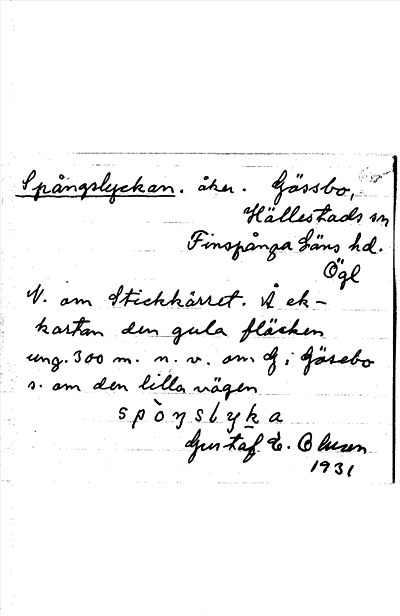 Spångslyckan. åker. Gössbo,
Hällestads sn
Finspånga Läns hd.
Ögl
N. om Stickkärret. Å ek-
kartan den gula fläcken
ung. 300 m. n. v. om G i Gösebo
s. om den lilla vägen
spòŋslyka
Gustaf E. Olsson
1931